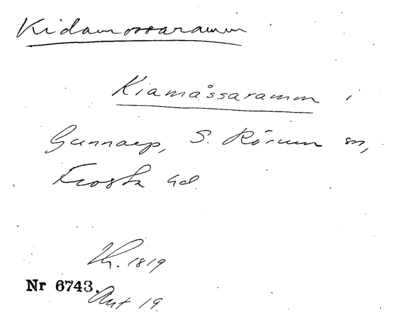 Kidamossaramm
Kiamåssaramm i
Gunnarp, S. Rörum sn,
Frosta hd.
Uh. 1819
Nr 6743. Ant 19.